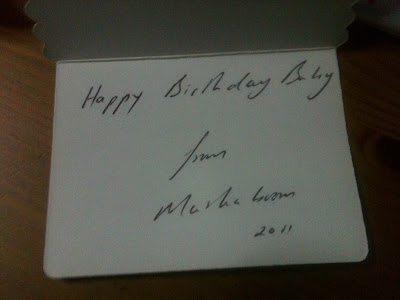 Happy Birthday Baby
from
2011